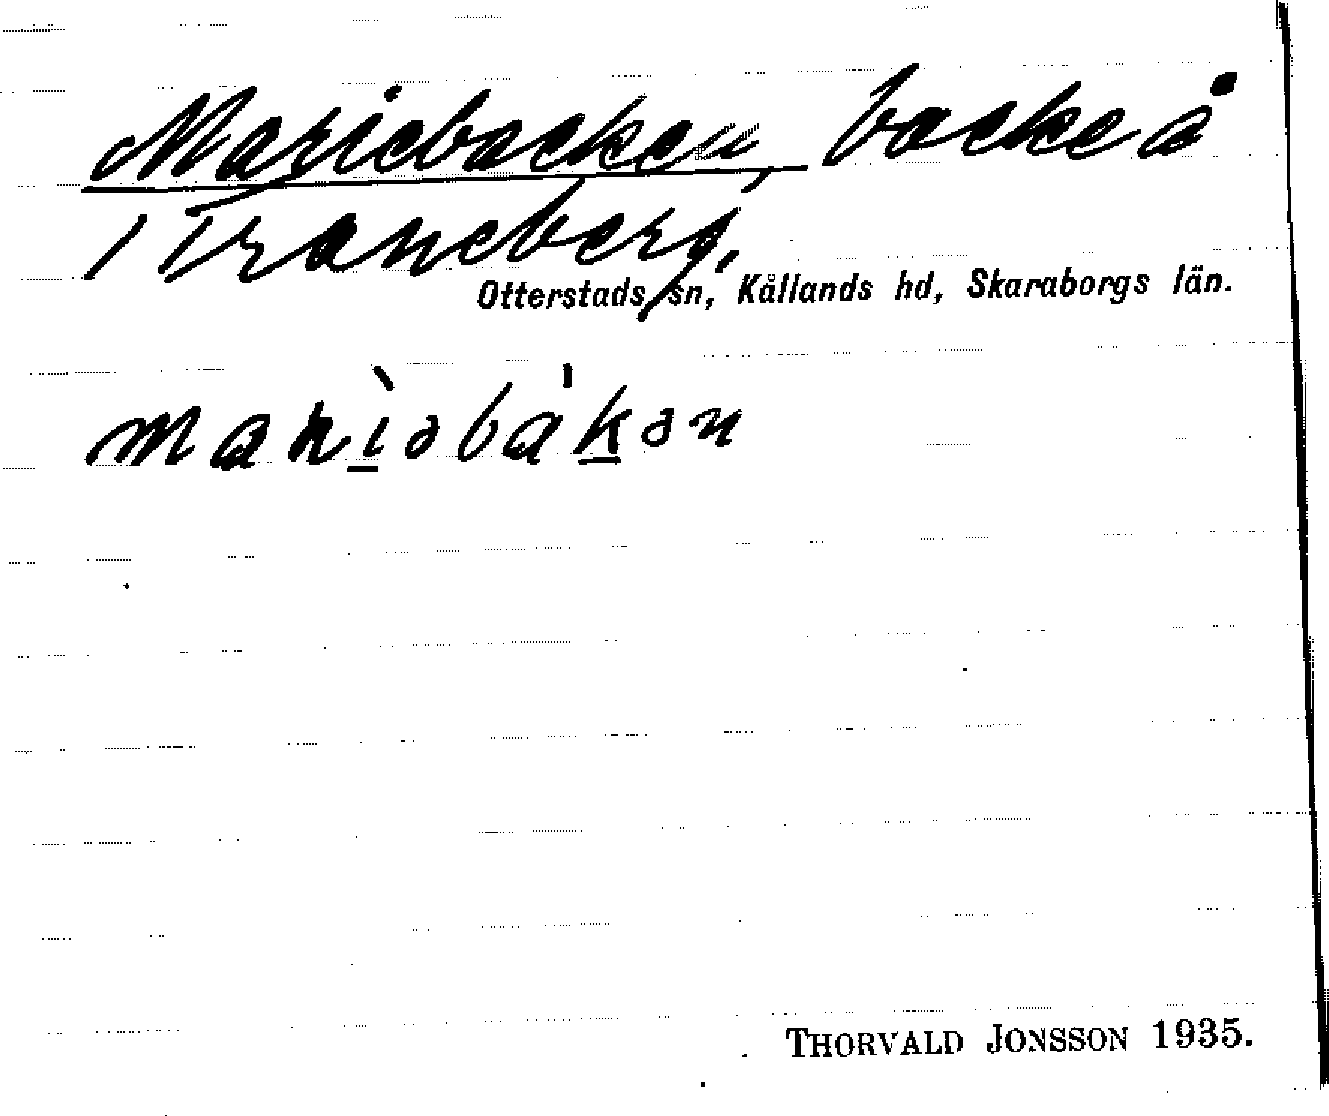 Mariebacken, backe å
/ Traneberg,
Otterstads sn, Kållands hd, Skaraborgs län.
marìəbákən
THORVALD JONSSON 1935.